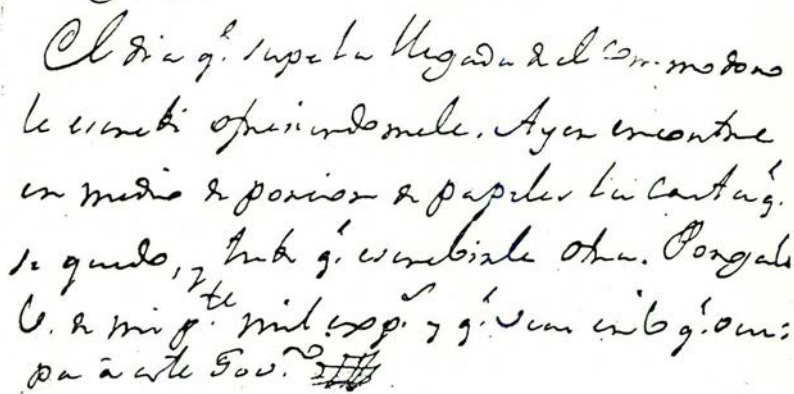 El dia q.e supe la llegada del Commodoro
le escrebi ofreciendomele. Ayer encontre
en medio de porcion de papeles la carta q.e
se quedo, y tube q.e escrebirle otra. Pongale
V. de mi p.te mil exp.s y q.e vea en lo q.e ocu=
pa à este Gov.no